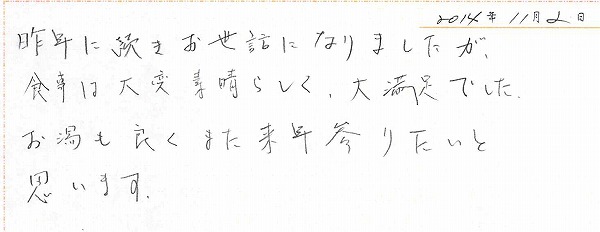 2014年 11月2日
昨年に続きお世話になりましたが、
食事は大変素晴らしく、大満足でした。
お湯も良くまた来年参りたいと
思います。